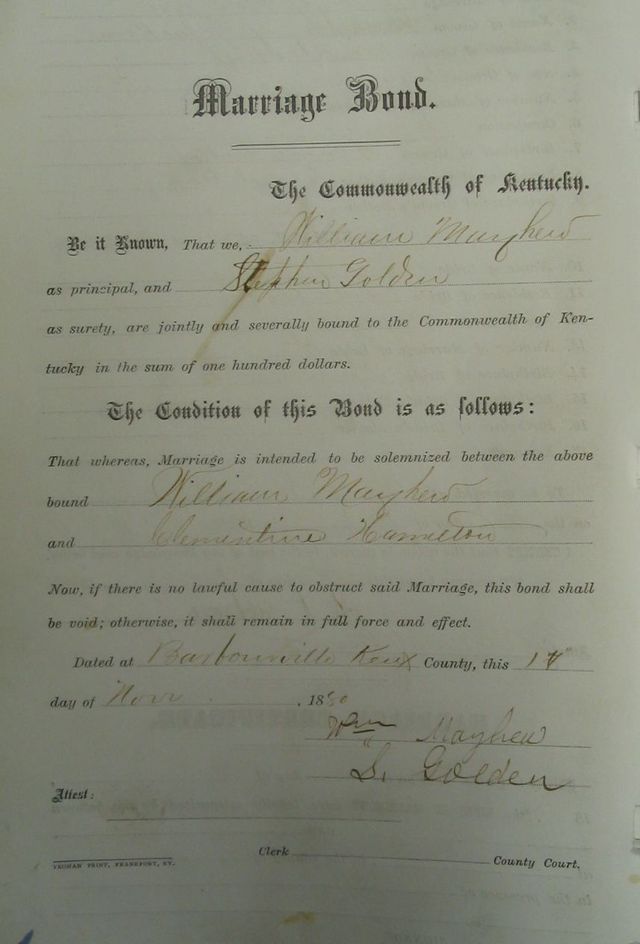 Marriage Bond.
The Commonwealth of Kentucky.
Be it Known, That we, William Mayhew
as principal, and Stephen Golden
as surety, are jointly and severally bound to the Commonwealth of Ken-
tucky in the sum of one hundred dollars.
The Condition of this Bond is as follows:
That whereas, Marriage is intended to be solemnized between the above
bound William Mayhew
and Clementine Hamelton
Now, if there is no lawful cause to obstruct said Marriage, this bond shall
be void; otherwise, it shall remain in full force and effect.
Dated at Barbourville Knox County, this
day of Novr , 1880
Wm Mayhew
S. Golden
Attest:
Clerk County Court.
YEOMAN PRINT, FRANKFORT, KY.